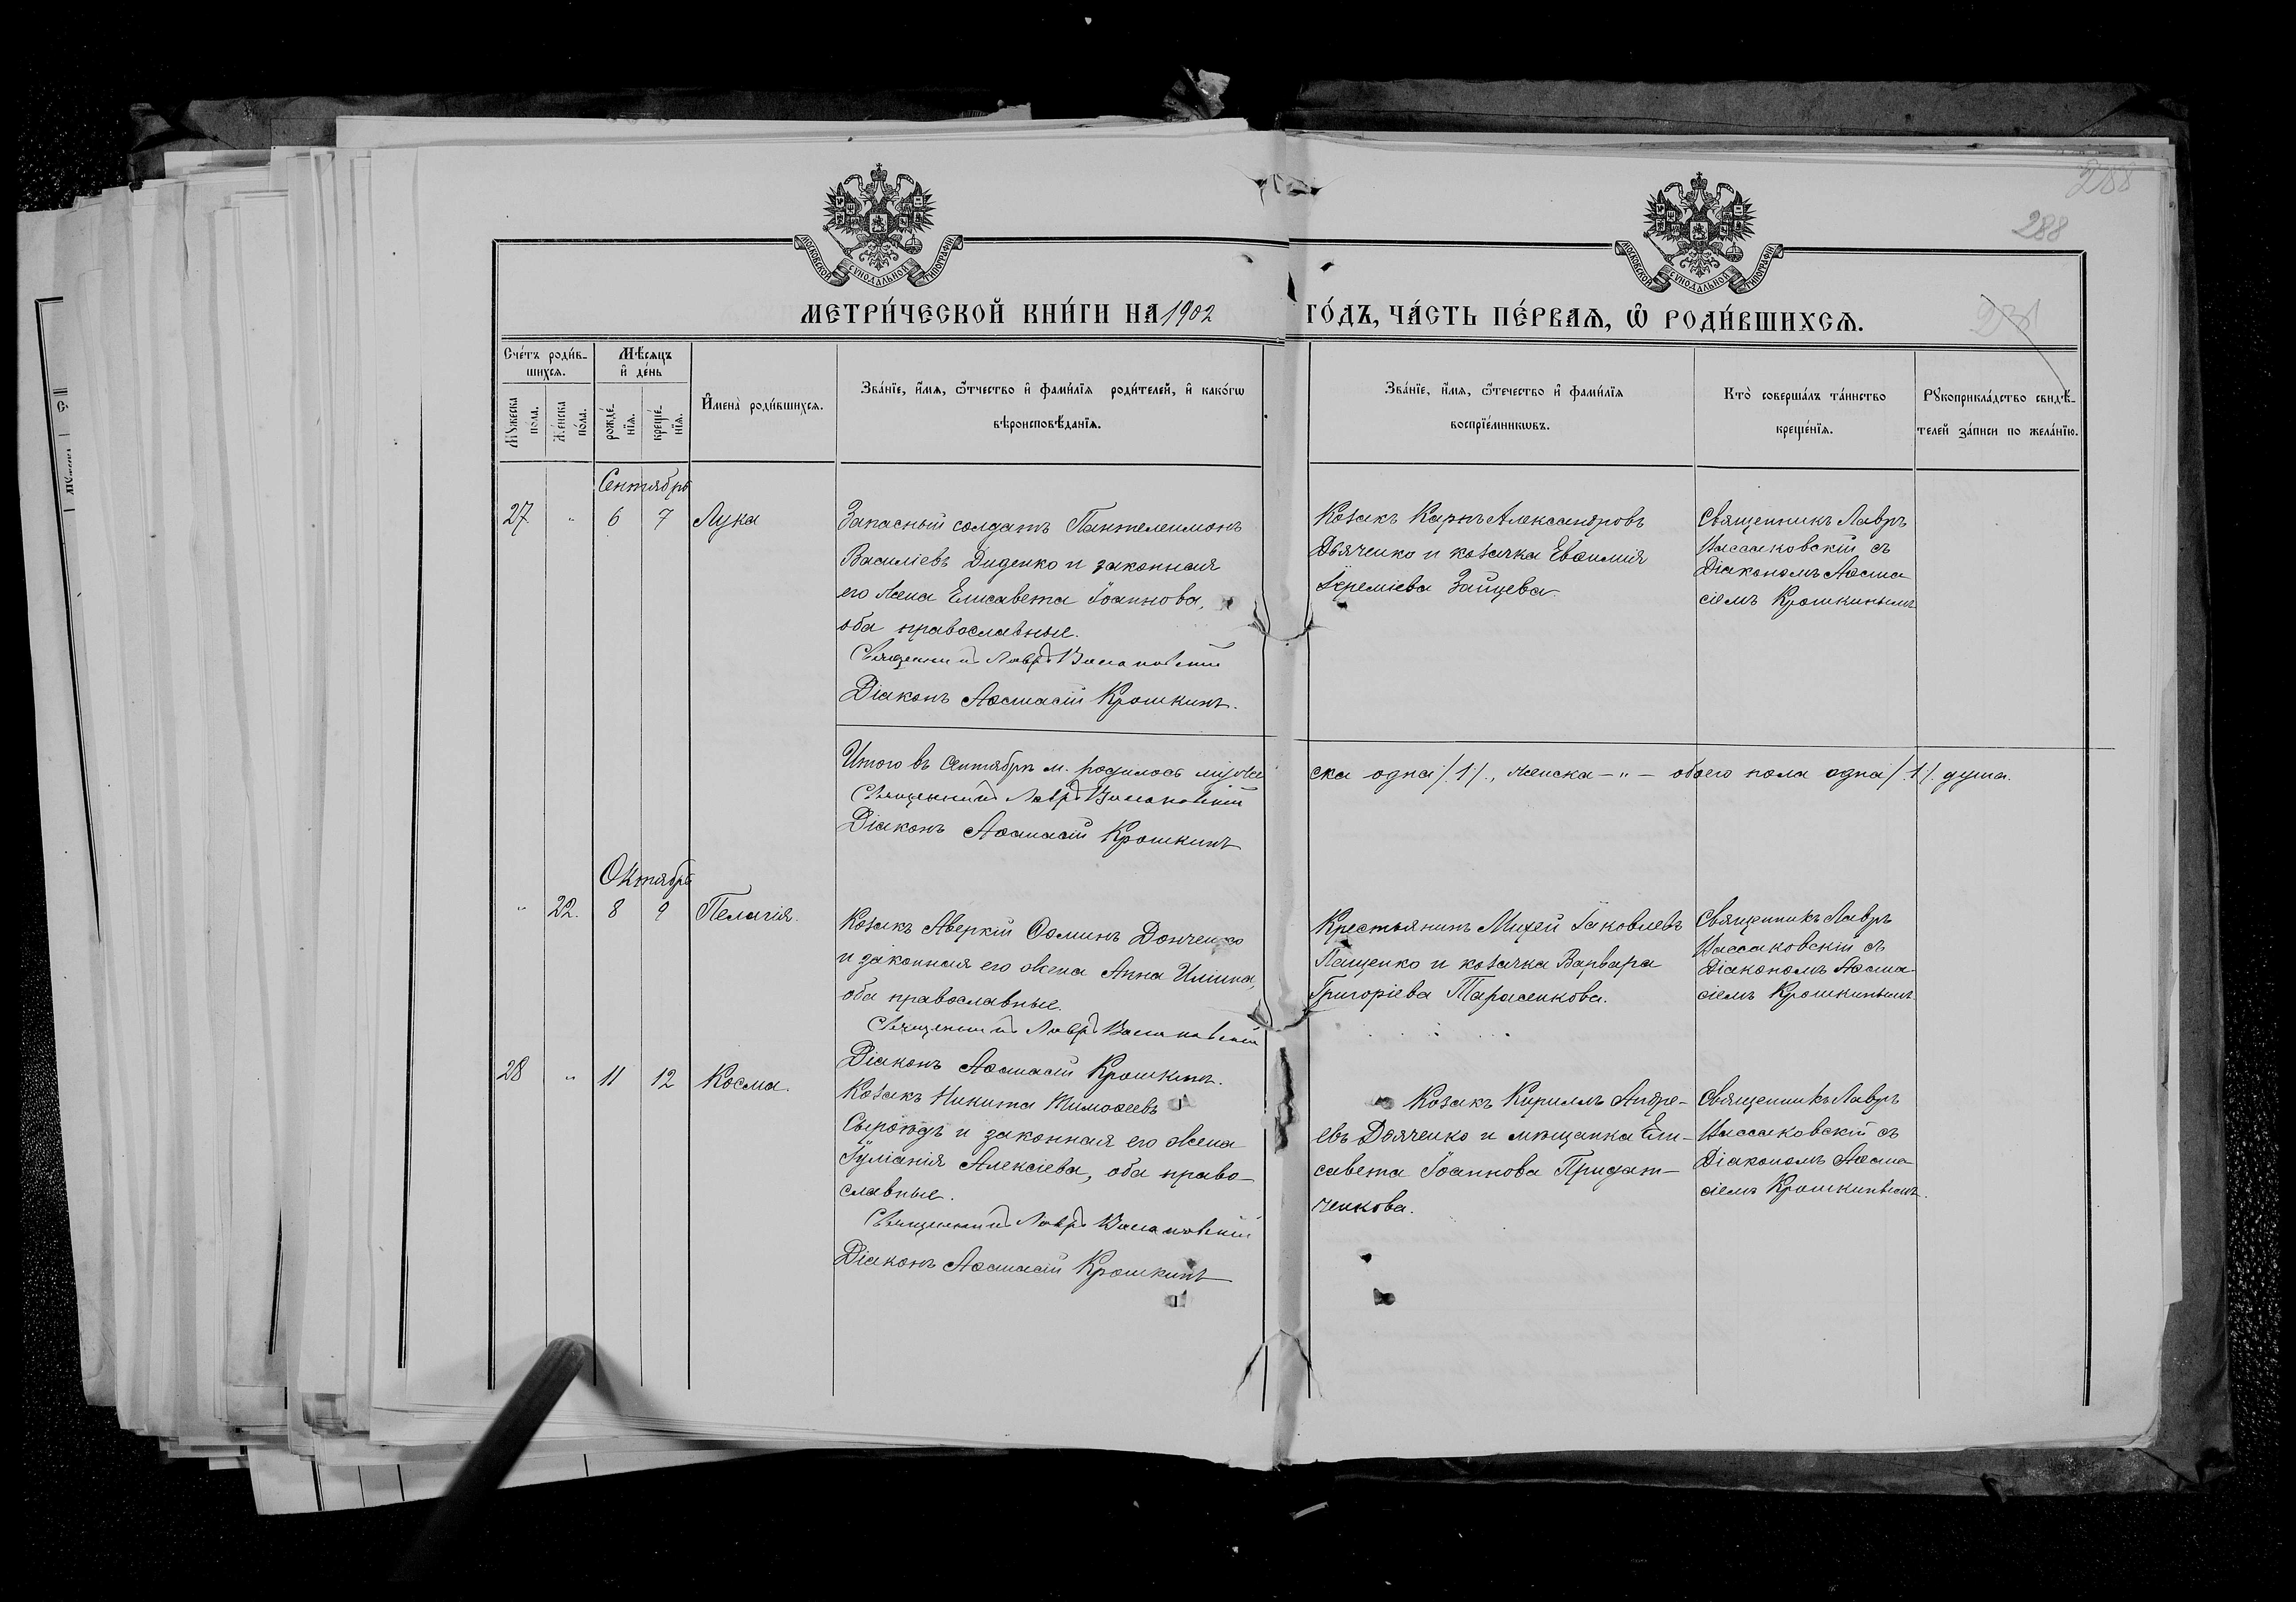 288
288
231
МОСКОВСКОЙ СѴНОДАЛЬНОЙ ТИПОГРАФІИ
МОСКОВСКОЙ СѴНОДАЛЬНОЙ ТИПОГРАФІИ
МЕТРИ́ЧЕСКОЙ КНИ́ГИ НА 1902 ГО́ДЪ, ЧА́СТЬ ПЕ́РВАѦ, Ѡ РОДИ́ВШИХСѦ.
Сче́тъ роди́в-
шихсѧ.
Мѣ́сяцъ
и҆ де́нь
Мꙋ́жеска
по́ла.
Же́нска
по́ла.
рожде́-
нїѧ.
креще́-
нїѧ.
И҆мена̀ роди́вшихсѧ.
Зва́нїе, и҆́мѧ, ѻ҆́тчество и҆ фами́лїѧ роди́телей, и҆ како́гѡ
вѣроисповѣ́данїѧ.
Зва́нїе, и҆́мѧ, ѻ҆́течество и҆ фами́лїѧ
воспрїе́мникѡвъ.
Кто̀ соверша́лъ та́инство
креще́нїѧ.
Рꙋкоприкла́дство свидѣ́-
телей за́писи по жела́нїю.
Сентябрь
27 " 6 7 Лука
Запасный солдатъ Пантелеимонъ
Василіевъ Диденко и законная
его жена Елисавета Іоаннова,
оба православные.
Священникъ Лавръ
Діаконъ Аѳанасій Крошкинъ.
Козакъ Карпъ Александровъ
Дьяченко и козачка Евѳимія
Іереміева Зайцева.
Священникъ Лавръ
съ
Діакономъ Аѳана-
сіемъ Крошкинымъ
Итого въ Сентябрѣ м. родилось мужеска одна /.1/., женска — " — обоего пола одна /.1/. душа.
Священникъ Лавръ
Діаконъ Аѳанасій Крошкинъ
Октябрь
" 22. 8 9 Пелагія.
Козакъ Аверкій Ѳоминъ Донченко
и законная его жена Анна Иліина,
оба православные.
Священникъ Лавръ
Діаконъ Аѳанасій Крошкинъ.
Крестьянинъ Михей Іаковлевъ
Пащенко и козачка Варвара
Григоріева Тарасенкова.
Священникъ Лавръ
съ
Діакономъ Аѳана-
сіемъ Крошкинымъ.
28 " 11 12 Косма.
Козакъ Никита Тимоѳеевъ
Сыроѣдъ и законная его жена
Іуліанія Алексіева, оба право-
славные.
Священникъ Лавръ
Діаконъ Аѳанасій Крошкинъ
Козакъ Кириллъ Андре-
евъ Дьяченко и мѣщанка Ели-
савета Іоаннова Придат-
ченкова.
Священникъ Лавръ
съ
Діакономъ Аѳана-
сіемъ Крошкинымъ.